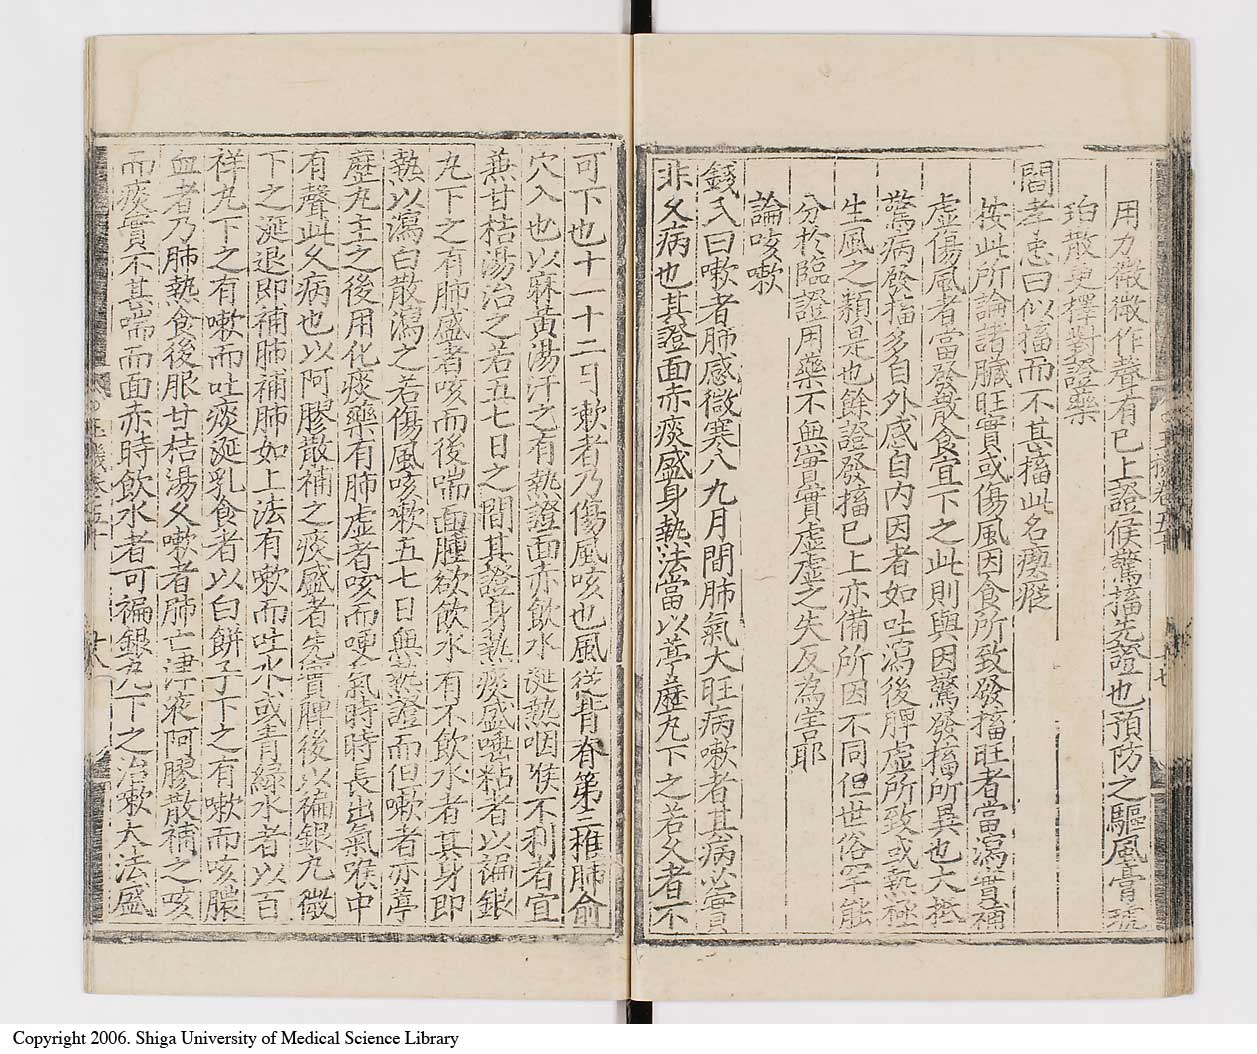 用力微微作聲有已上證候驚搐先證也預防之驅風膏琥
珀散更擇對證藥
閻孝忠曰似搐而不甚搐此名瘈瘲
按此所論諸臟旺實或傷風因食所致發搐旺者當瀉實補
虛傷風者當發散食宜下之此則與因驚發搐所異也大抵
驚病發搐多自外感自內因者如吐瀉後脾虛所致或熱極
生風之類是也餘證發搐已上亦備所因不同但世俗罕能
分於臨證用藥不無實實虛虛之失反為害耶
論咳嗽
錢乙曰嗽者肺感微寒八九月間肺氣大旺病嗽者其病必實
非久病也其證面赤痰盛身熱法當以葶藶丸下之若久者不
可下也十一十二月嗽者乃傷風咳也風從背脊第三椎肺俞
穴入也以麻黃湯汗之有熱證面赤飲水涎熱咽喉不利者宜
兼甘桔湯治之若五七日之間其證身熱痰盛唾粘者以褊銀
丸下之有肺盛者咳而後喘面腫欲飲水有不飲水者其身即
熱以瀉白散瀉之若傷風咳嗽五七日無熱證而但嗽者亦葶
藶丸主之後用化痰藥有肺虛者咳而哽氣時時長出氣喉中
有聲此久病也以阿膠散補之痰盛者先實脾後以褊銀丸微
下之涎退即補肺補肺如上法有嗽而吐水或青綠水者以百
祥丸下之有嗽而吐痰涎乳食者以白餅子下之有嗽而咳膿
血者乃肺熱食後服甘桔湯久嗽者肺亡津液阿膠散補之咳
而痰實不甚喘而面赤時飲水者可褊銀丸下之治嗽大法盛